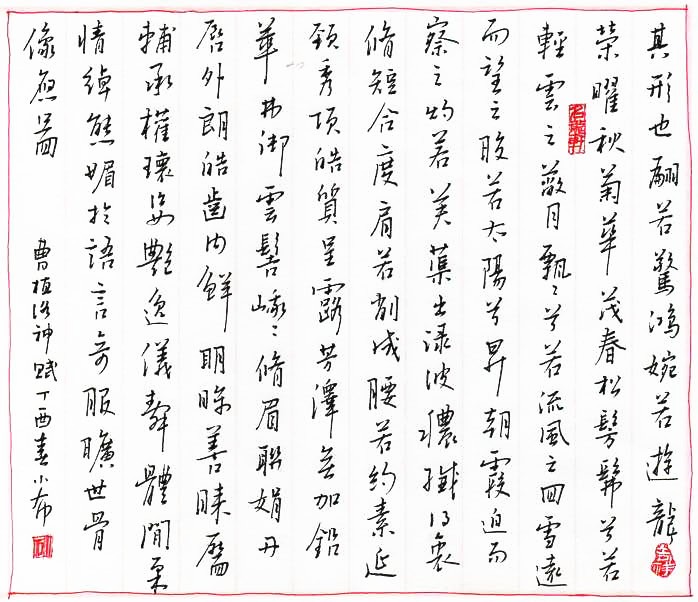 其形也翩若驚鴻婉若遊龍
榮曜秋菊華茂春松髣髴兮若
輕雲之蔽月飄〻兮若流風之回雪遠
而望之皎若太陽兮昇朝霞迫而
察之灼若芙蕖出淥波穠纖得衷
脩短合度肩若削成腰若約素延
頸秀項皓質呈露芳澤無加鉛
華弗御雲髻峨〻脩眉聯娟丹
唇外朗皓齒内鮮明眸善睞靨
輔承權瓌姿艷逸儀靜體閒柔
情綽態媚於語言奇服曠世骨
像應圖
曹植洛神賦丁酉春小希
吉祥